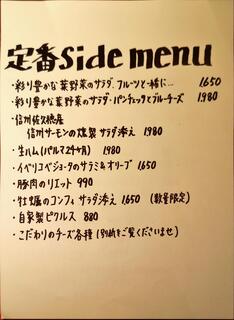 定番side menu
・彩り豊かな葉野菜のサラダ、フルーツと一緒に… 1650
・彩り豊かな葉野菜のサラダ・パンチェッタとブルーチーズ 1980
・信州佐久穂産
信州サーモンの燻製 サラダ添え 1980
・生ハム(パルマ24ヶ月) 1980
・イベリコベジョータのサラミ&オリーブ 1650
・豚肉のリエット 990
・牡蠣のコンフィ サラダ添え 1650 (数量限定)
・自家製ピクルス 880
・こだわりのチーズ各種 (別紙をご覧くださいませ)